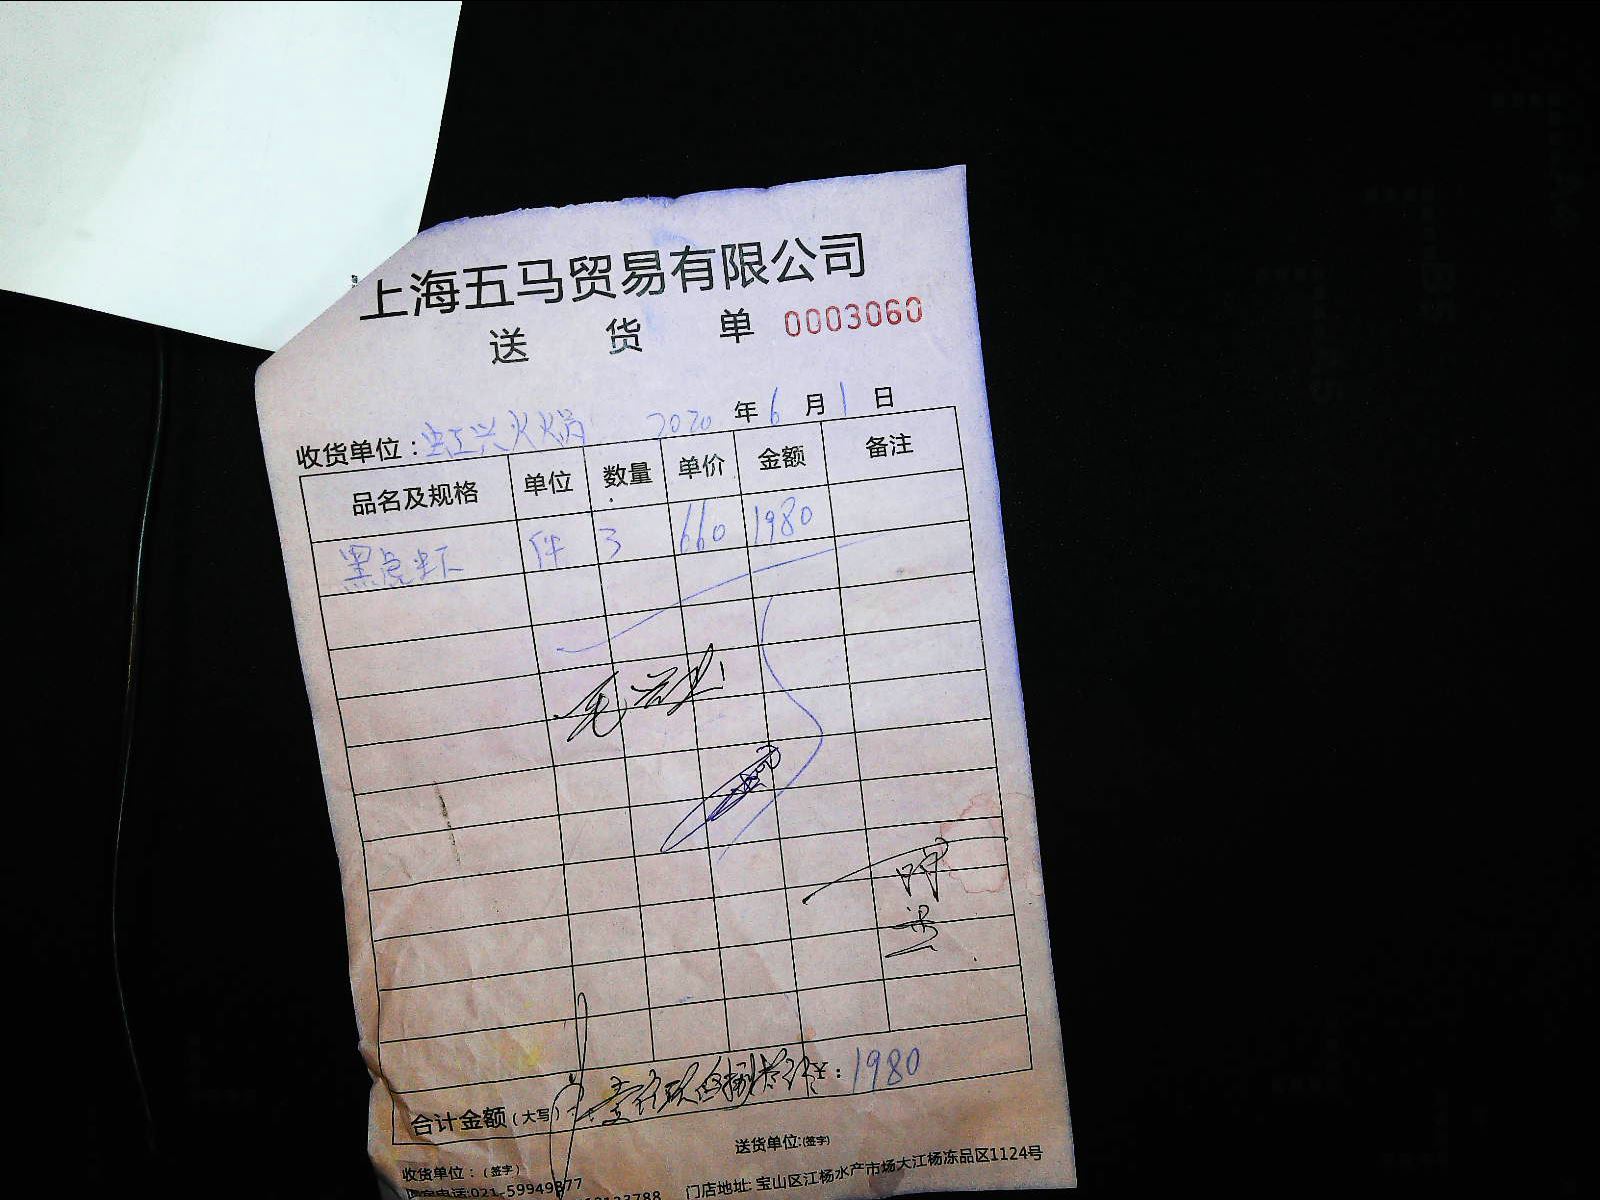 上海五马贸易有限公司
送 货 单 0003060
收货单位：虹兴火火锅 2020 年 6 月 1 日
品名及规格 单位 数量 单价 金额 备注
黑虎虾 件 3 660 1980
合计金额（大写） 壹仟玖佰捌拾 1980
收货单位：（签字） 送货单位:(签字)
门店地址: 宝山区江杨水产市场大江杨冻品区1124号